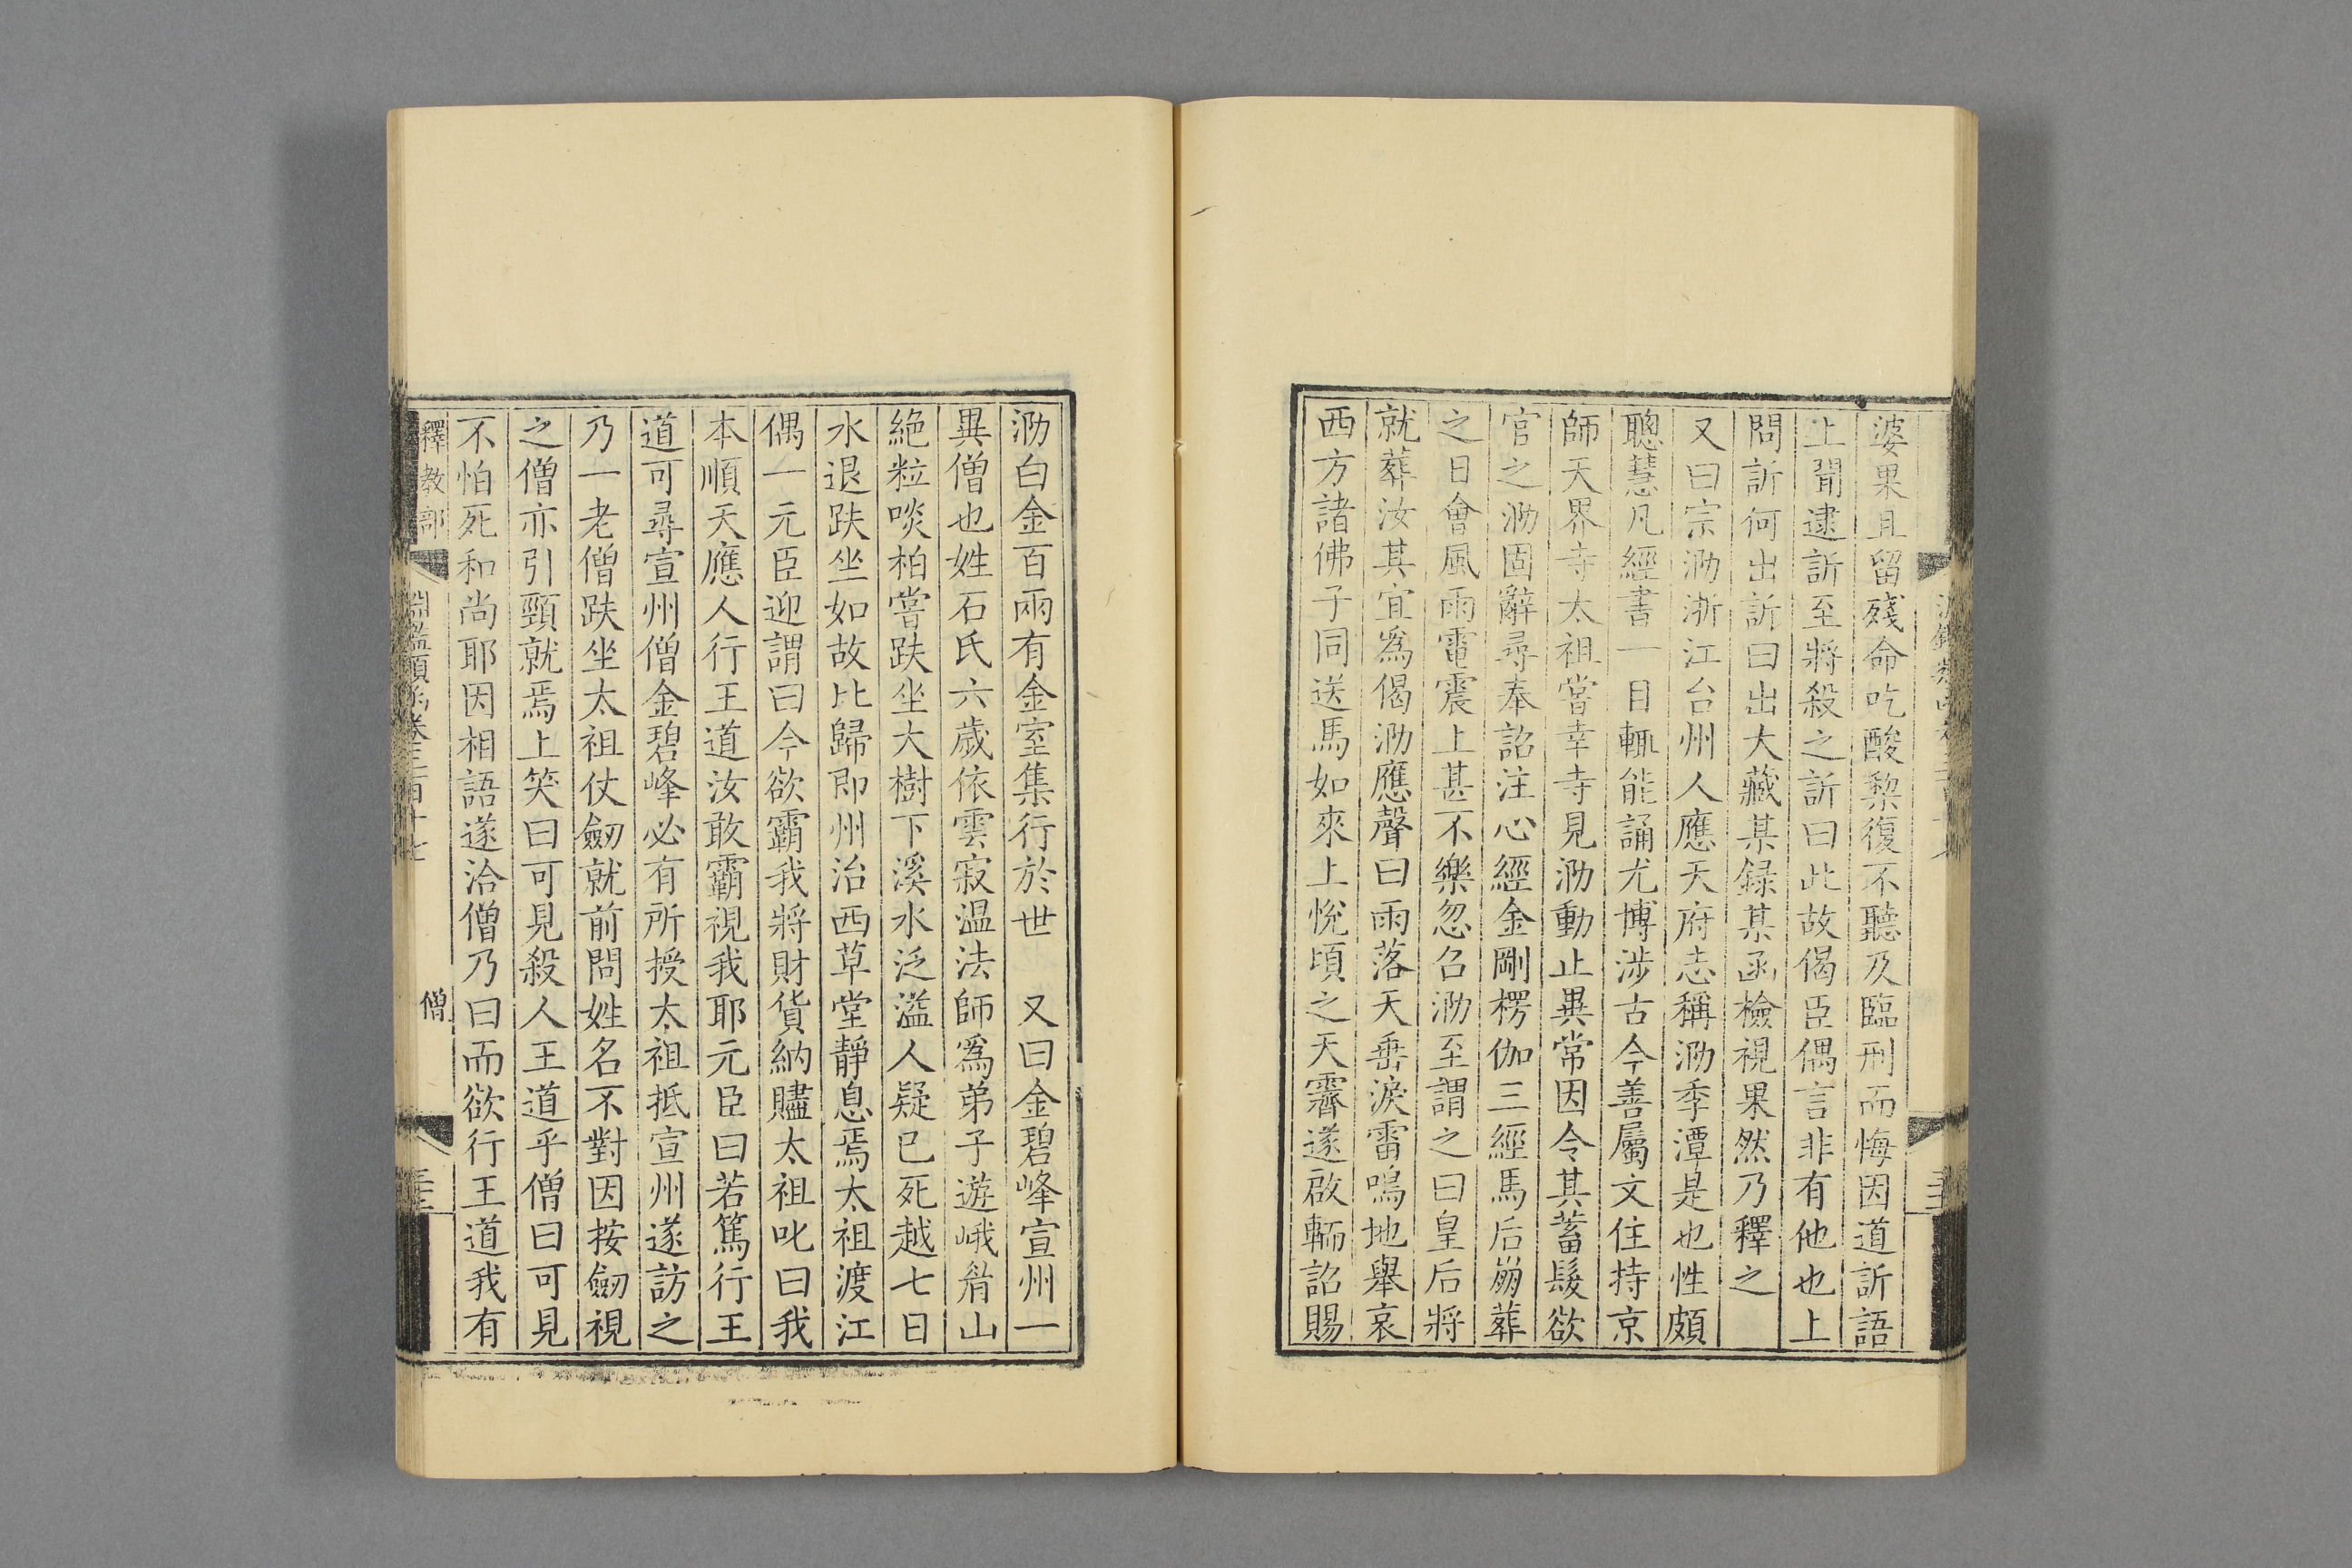 婆果且留殘命吃酸棃復不聽及臨刑而悔因道訢語
上聞逮訢至將殺之訢曰此故偈臣偶言非有他也上
問訢何出訢曰出大藏某錄某函檢視果然乃釋之
又曰宗泐浙江台州人應天府志稱泐季潭是也性頗
聰慧凡經書一目輒能誦尤博涉古今善屬文住持京
師天界寺太祖嘗幸寺見泐動止異常因令其蓄髮欲
官之泐固辭尋奉詔注心經金剛楞伽三經馬后崩葬
之日會風雨電震上甚不樂忽召泐至謂之曰皇后將
就葬汝其宜爲偈泐應聲曰雨落天垂淚雷鳴地舉哀
西方諸佛子同送馬如來上悅頃之天霽遂啟輀詔賜
泐白金百兩有金室集行於世 又曰金碧峰宣州一
異僧也姓石氏六歲依雲寂温法師爲弟子遊峨眉山
絶粒啖柏嘗趺坐大樹下溪水泛溢人疑已死越七日
水退趺坐如故比歸即州治西草堂靜息焉太祖渡江
偶一元臣迎謂曰今欲霸我將財貨納贐太祖叱曰我
本順天應人行王道汝敢霸視我耶元臣曰若篤行王
道可尋宣州僧金碧峰必有所授太祖抵宣州遂訪之
乃一老僧趺坐太祖仗劒就前問姓名不對因按劒視
之僧亦引頸就焉上笑曰可見殺人王道乎僧曰可見
不怕死和尚耶因相語遂洽僧乃曰而欲行王道我有
釋教部
淵鑑類函卷三百十七
僧